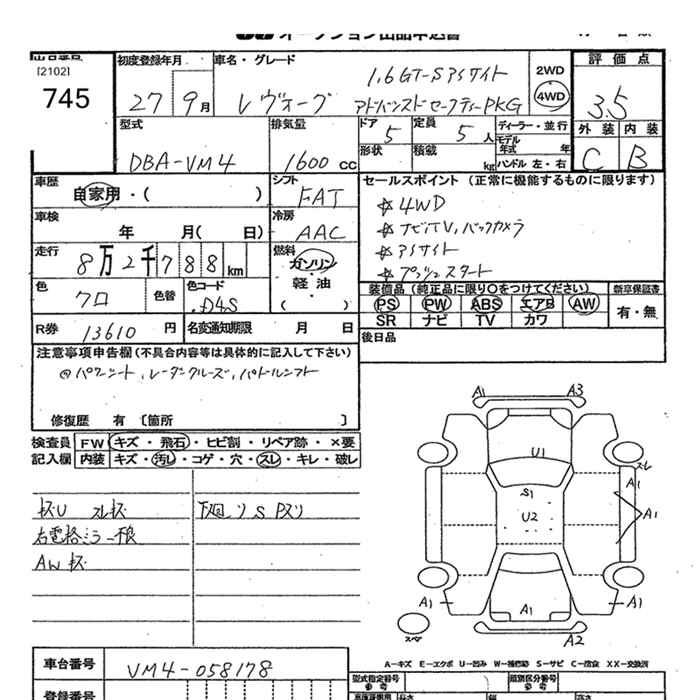 オークション出品申込書
[2102]
745
初度登録年月
27年 9月
車名・グレード
レヴォーグ
1.6GT-S アイサイト
アドバンスドセーフティーPKG
2WD
4WD
評価点
3.5
外装 内装
C B
型式
DBA-VM4
排気量
1600 cc
ドア
5
定員
5 人
ディーラー・並行
モデル年式 年
形状
積載 kg
ハンドル 左・右
車歴
自家用・( )
シフト
FAT
セールスポイント (正常に機能するものに限ります)
☆4WD
☆ナビTV、バックカメラ
☆アイサイト
☆プッシュスタート
車検
年 月( 日)
冷房
AAC
走行
8万2千788km
燃料
ガソリン
軽油
( )
色
クロ
色替
色コード
D4S
装備品 (純正品に限り○をつけてください)
新車保証書
PS PW ABS エアB AW
SR ナビ TV カワ
有・無
R券 13610円
名変通知期限 月 日
後日品
注意事項申告欄 (不具合内容等は具体的に記入して下さい)
@パワーシート、レーダークルーズ、パドルシフト
修復歴 有 [箇所 ]
検査員
記入欄
FW キズ・飛石・ヒビ割・リペア跡・×要
内装 キズ・汚レ・コゲ・穴・スレ・キレ・破レ
右電格ミラー
AWキズ
A1
A3
U1
S1
U2
スレ
A1
A1
A1
A1
A1
スペア
A2
A-キズ E-エクボ U-凹み W-補修跡 S-サビ C-腐食 XX-交換済
車台番号
VM4-058178
登録番号
型式指定番号
参考
類別区分番号
参考